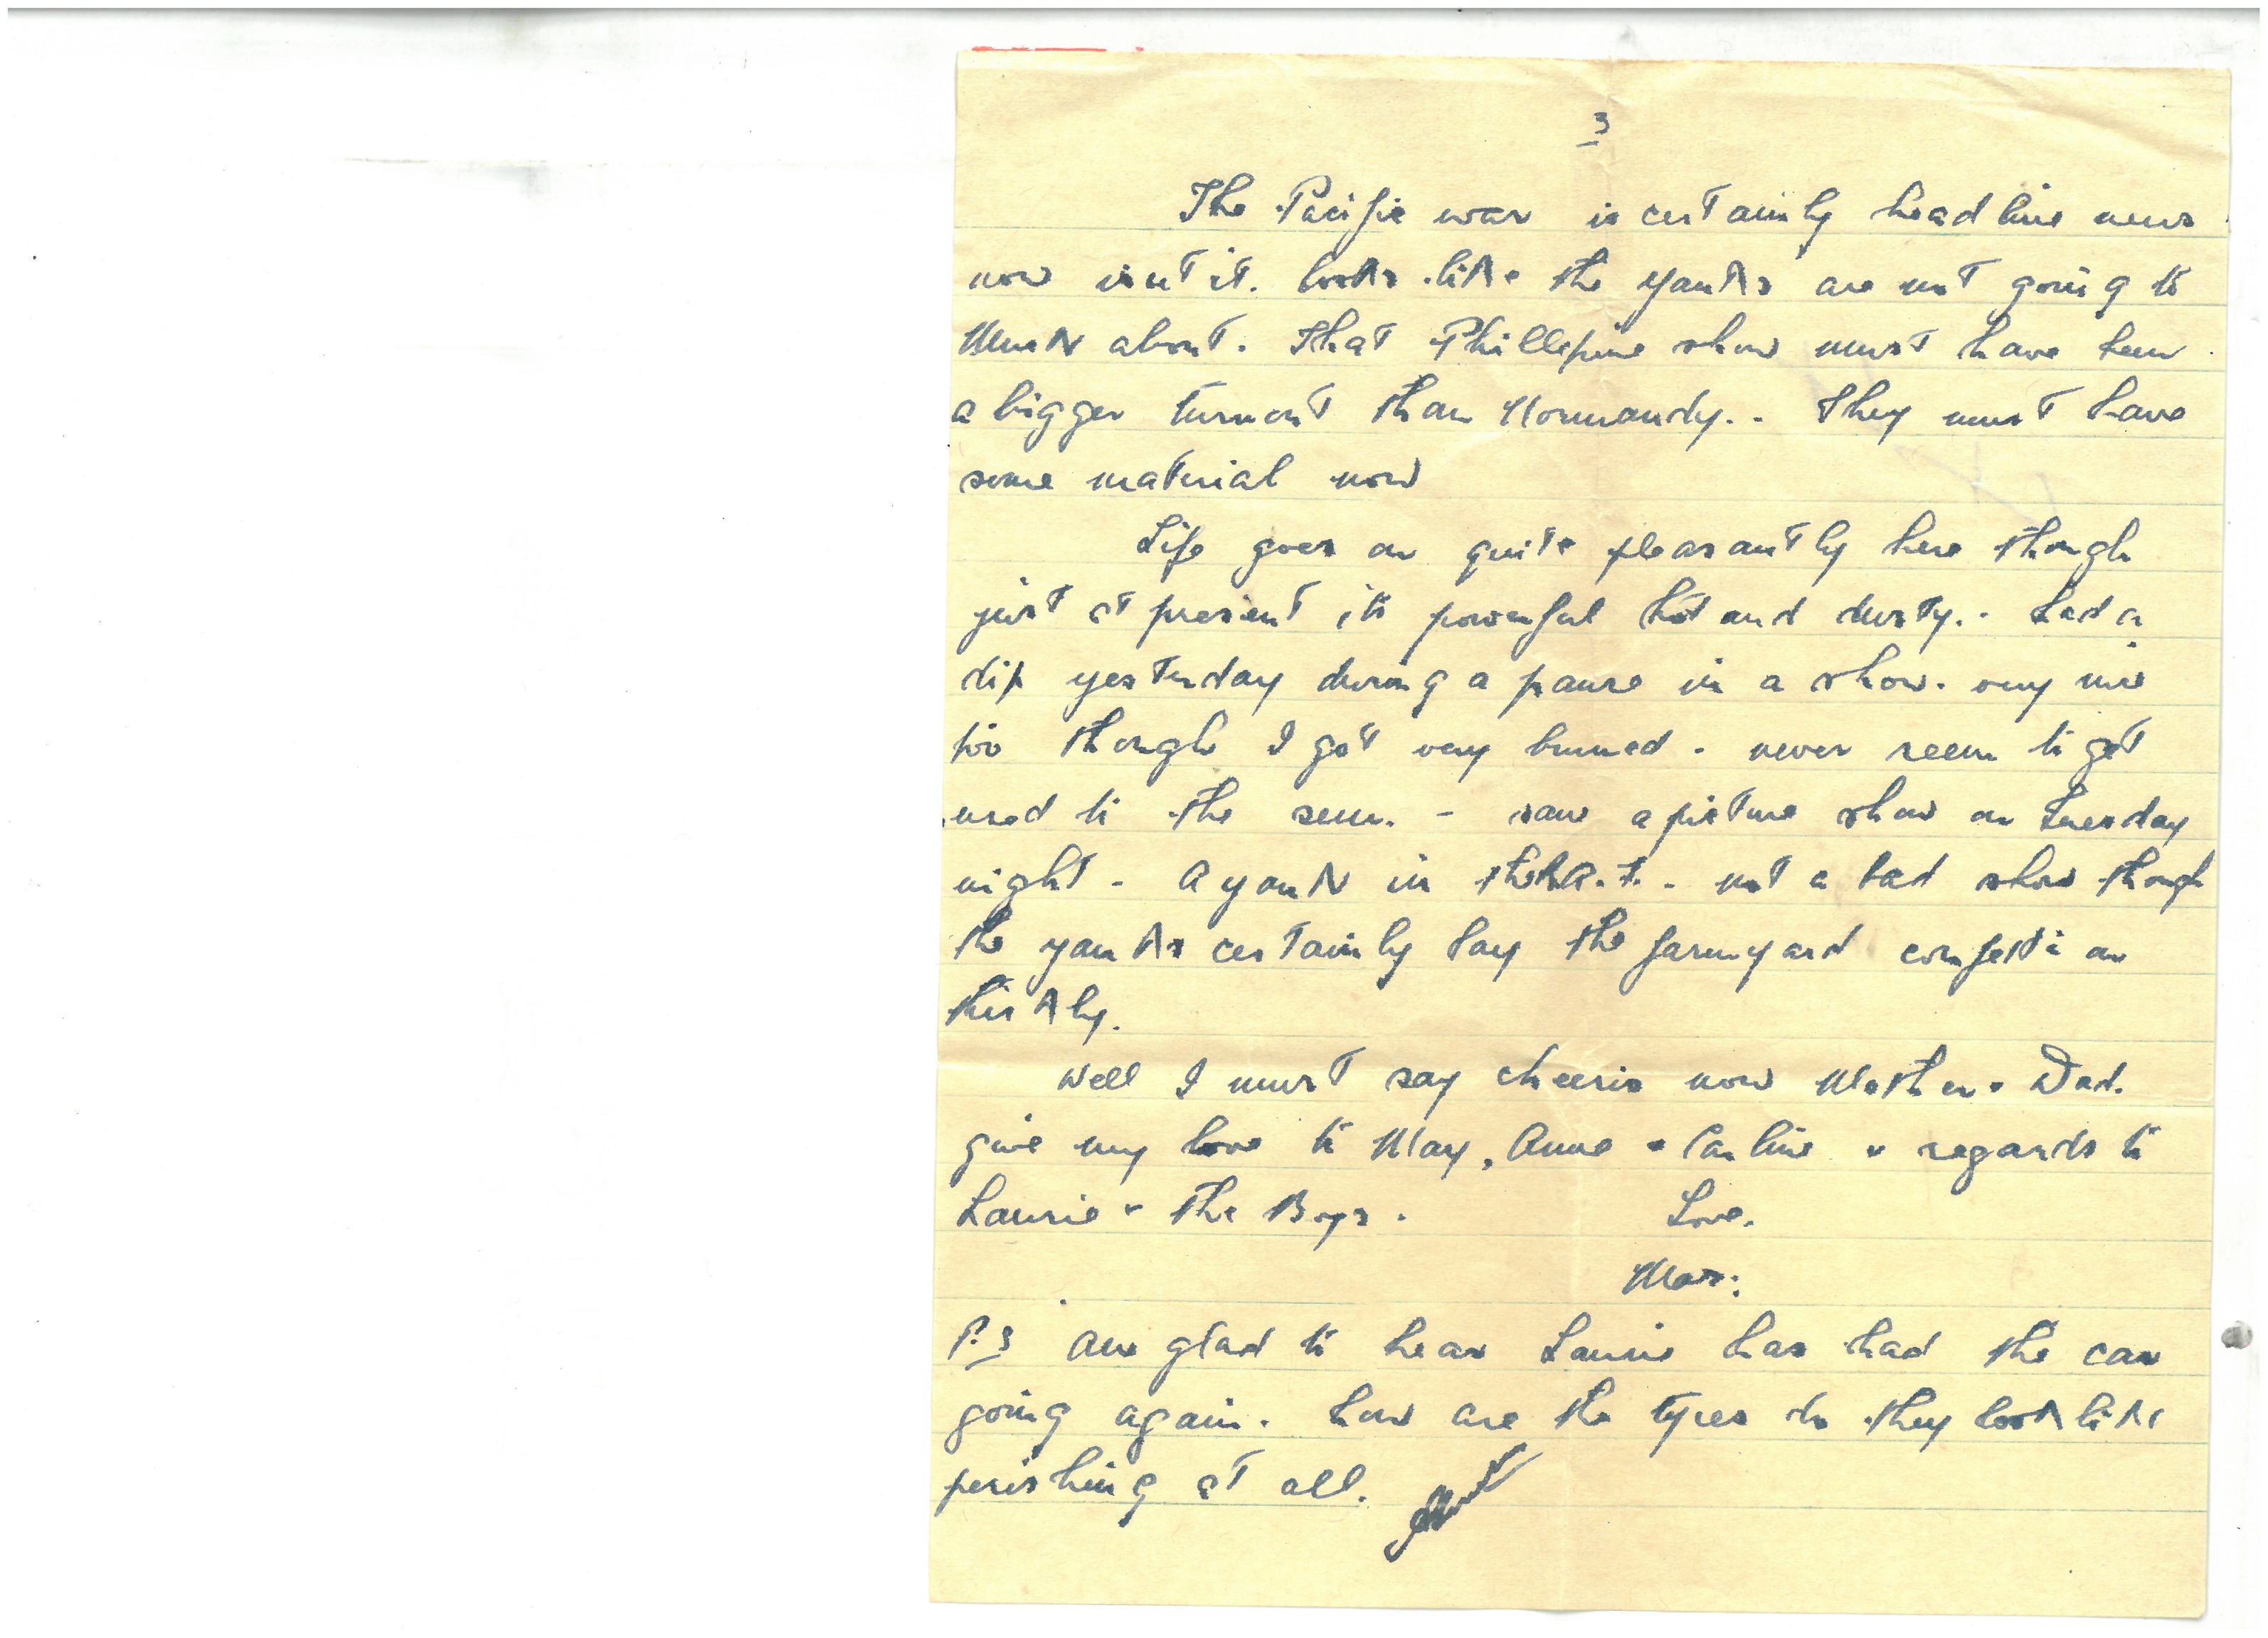 3
The Pacific war is certainly headline news
now isnt it. looks like the yanks are not going to
Muck about. That Phillepine show must have been
a bigger turnout than Normandy.. They must have
some material now
Life goes on quite pleasantly here though
just at present its powerful hot and dusty.. had a
dip yesterday during a pause in a show. very nice
too though I got very burned. never seem to get
used to the sun. - saw a picture show on Tuesday
night - A yank in the R.A.F. - not a bad show though
the yanks certainly lay the farmyard confetti on
thickly.
Well I must say cheerio now Mother & Dad.
give my love to May, Anne & Carline & regards to
Laurie & the Boys. Love.
Max.
P.S Am glad to hear Laurie has had the car
going again. how are the tyres do they look like
perishing at all.